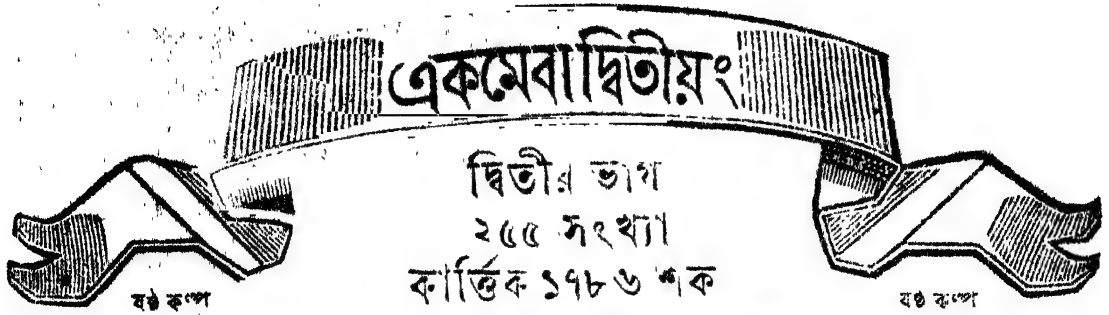 একমেবাদ্বিতীয়ং
দ্বিতীয় ভাগ
২৫৫ সংখ্যা
কার্ত্তিক ১৭৮৬ শক
ষষ্ঠ কল্প
ষষ্ঠ কল্প